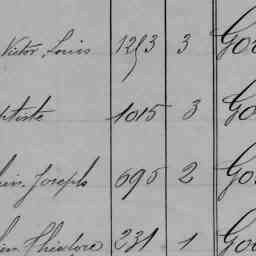 Victor Louis 1253 3 Go
ptiste 1015 3 Go
Joseph 695 2 Go
Théodore 231 1 Go